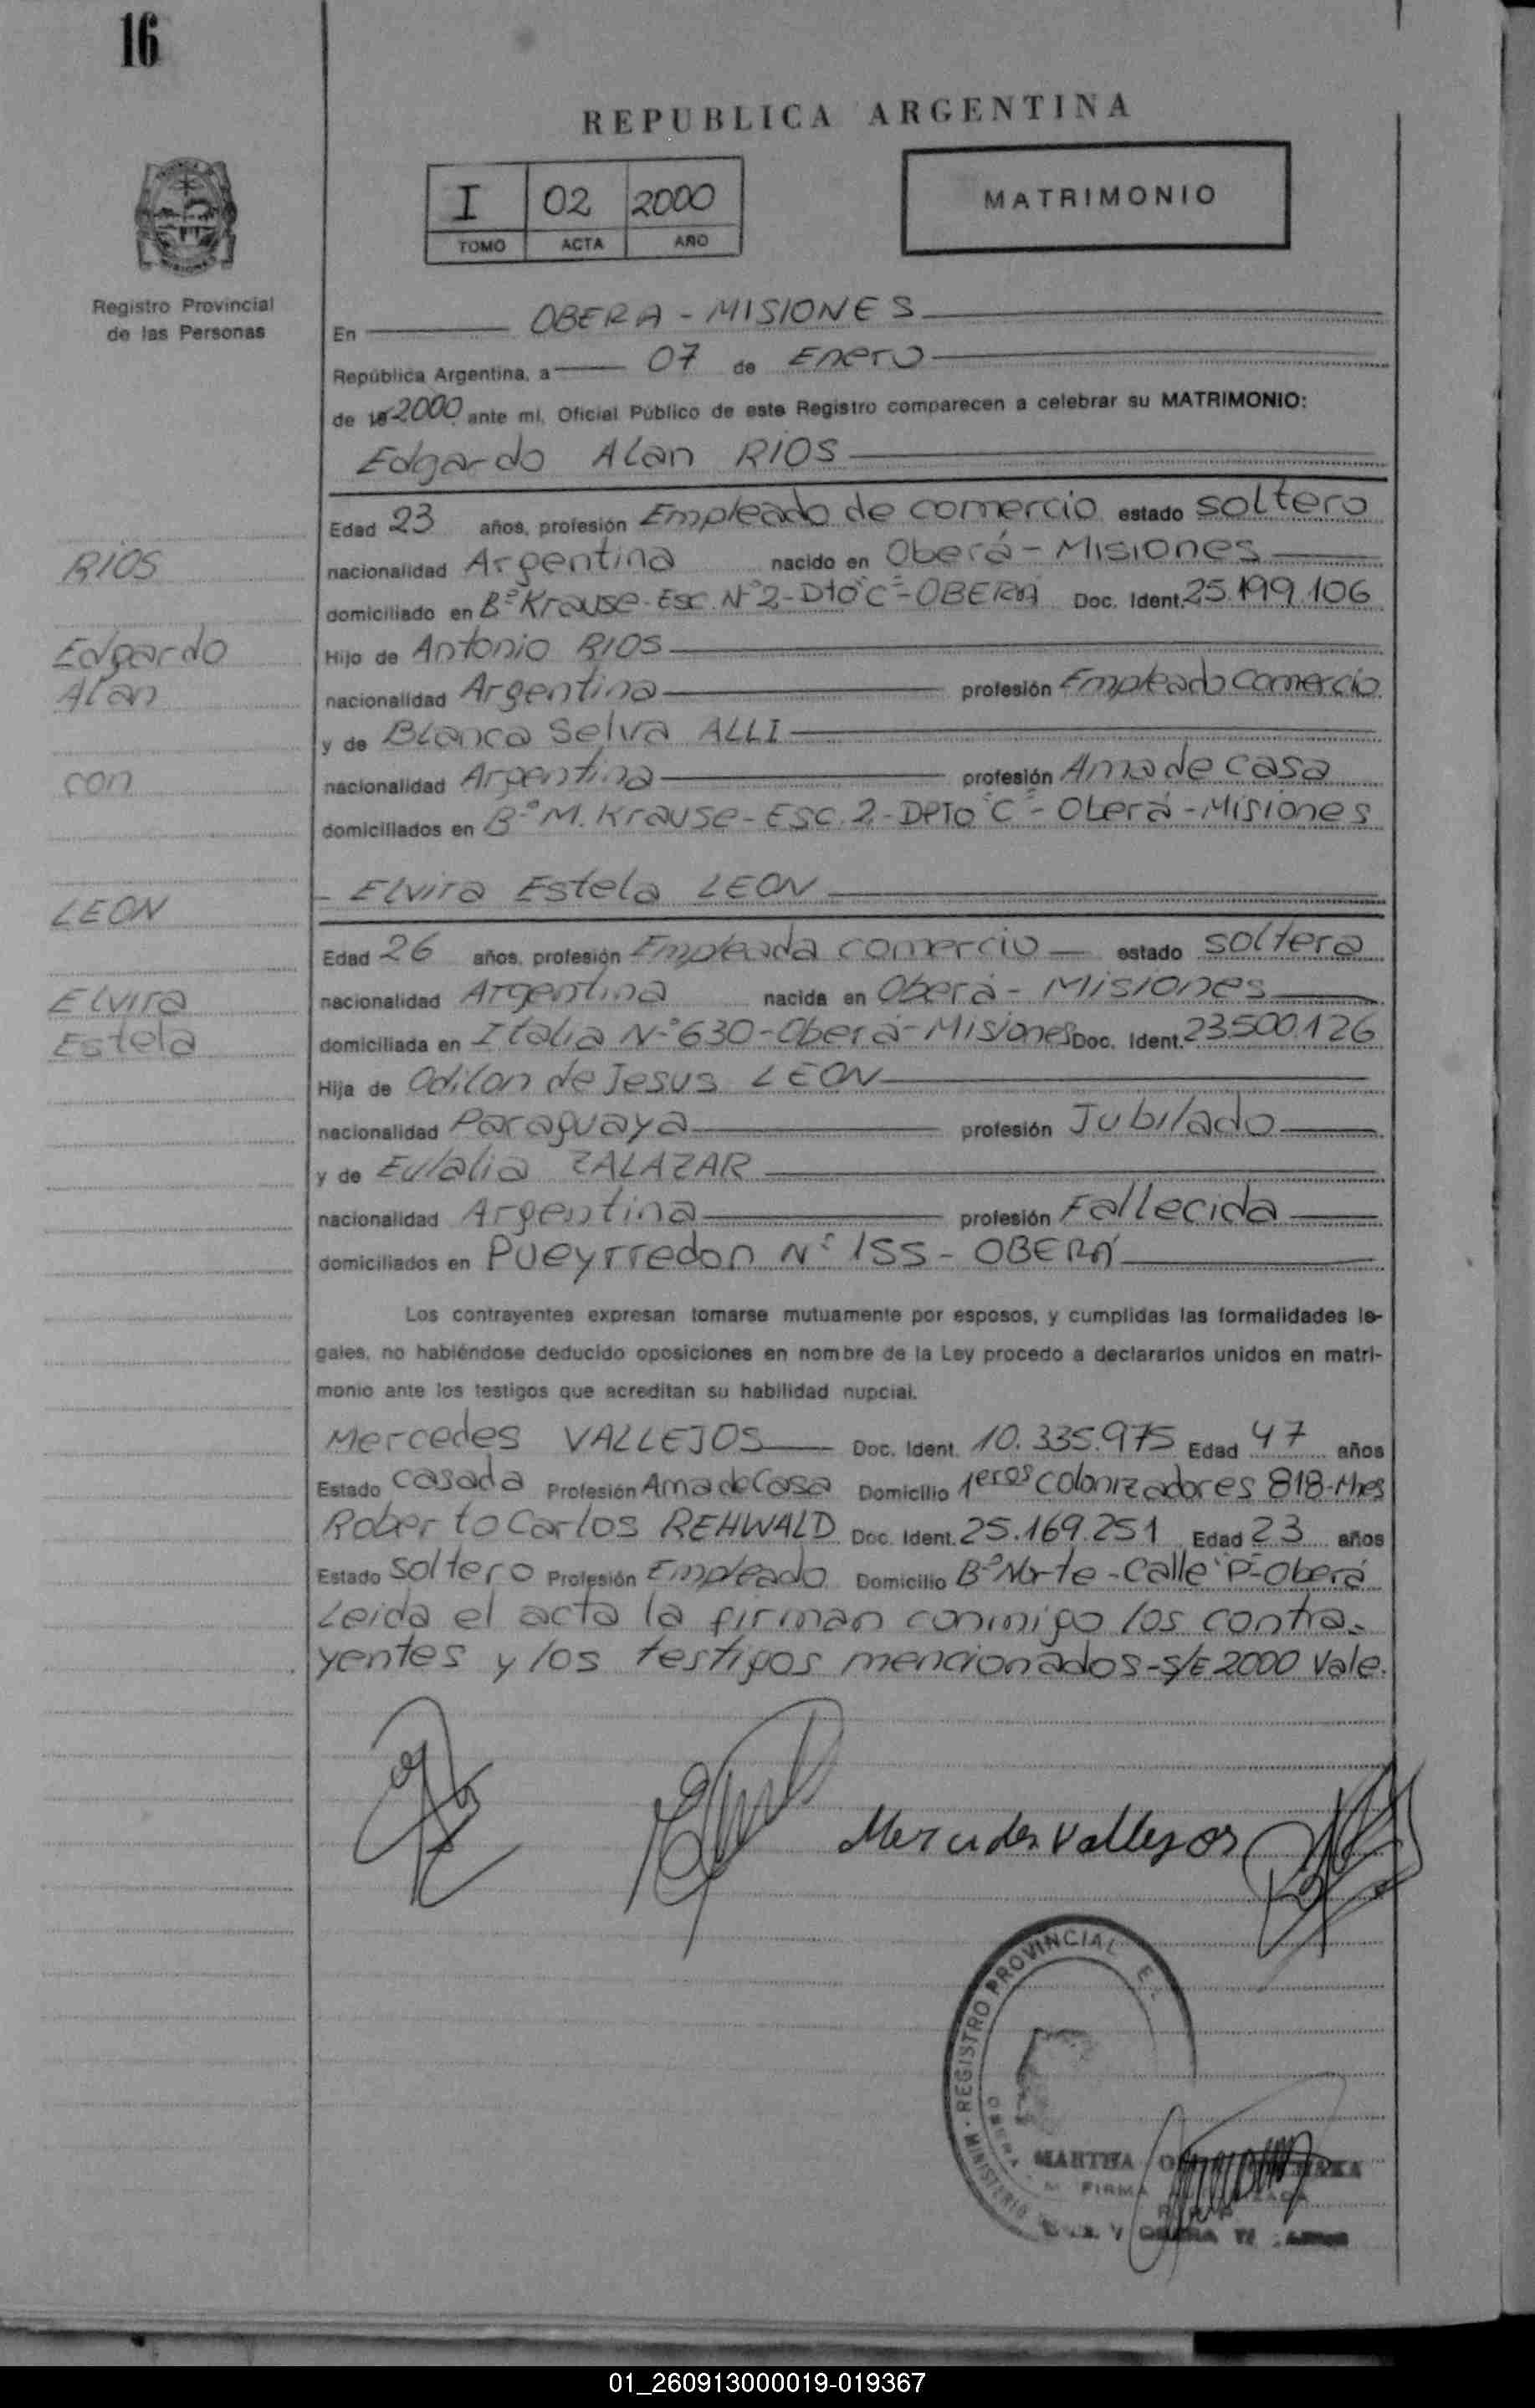 16
REPUBLICA ARGENTINA
I 02 2000
TOMO ACTA AÑO
MATRIMONIO
Registro Provincial
de las Personas
En OBERA - MISIONES
República Argentina, a 07 de Enero
de 2000 ante mí, Oficial Público de este Registro comparecen a celebrar su MATRIMONIO:
Edgardo Alan RIOS
Edad 23 años, profesión Empleado de comercio estado soltero
RIOS
nacionalidad Argentina nacido en Oberá - Misiones
domiciliado en Bº Krause - Esc. Nº 2 - Dto "C" - OBERÁ Doc. Ident. 25.199.106
Edgardo
Hijo de Antonio RIOS
Alan
nacionalidad Argentina profesión Empleado Comercio
y de Blanca Selva ALLI
con
nacionalidad Argentina profesión Ama de casa
domiciliados en Bº M. Krause - Esc. 2 - DPTO "C" - Oberá - Misiones
- Elvira Estela LEON
LEON
Edad 26 años, profesión Empleada comercio estado soltera
Elvira
nacionalidad Argentina nacida en Oberá - Misiones
Estela
domiciliada en Italia Nº 630 - Oberá - Misiones Doc. Ident. 23.500.126
Hija de Odilon de Jesus LEON
nacionalidad Paraguaya profesión Jubilado
y de Eulalia ZALAZAR
nacionalidad Argentina profesión Fallecida
domiciliados en Pueyrredon Nº 155 - OBERÁ
Los contrayentes expresan tomarse mutuamente por esposos, y cumplidas las formalidades le-
gales, no habiéndose deducido oposiciones en nombre de la Ley procedo a declararlos unidos en matri-
monio ante los testigos que acreditan su habilidad nupcial.
Mercedes VALLEJOS Doc. Ident. 10.335.975 Edad 47 años
Estado casada Profesión Ama de Casa Domicilio 1eros colonizadores 818 - Mnes
Roberto Carlos REHWALD Doc. Ident. 25.169.251 Edad 23 años
Estado soltero Profesión Empleado Domicilio Bº Norte - Calle "P" - Oberá
Leida el acta la firman conmigo los contra-
yentes y los testigos mencionados - S/E 2000 Vale.
Mercedes Vallejos
REGISTRO PROVINCIAL
MINISTERIO
OBERA
MARTHA
FIRMA
01_260913000019-019367